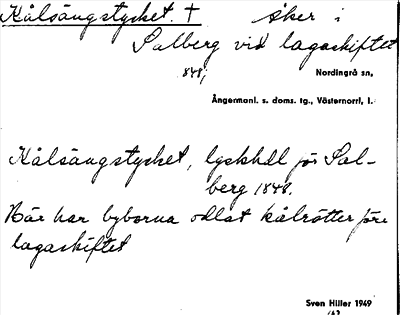 Kålsängstycket. † åker i
Salberg vid lagaskiftet
1848;
Nordingrå sn,
Ångermanl. s. doms. tg., Västernorrl, l.
Kålsängstycket, lyskhdl för Sal-
berg 1848.
Här har byborna odlat kålrötter före
lagaskiftet
Sven Hiller 1949